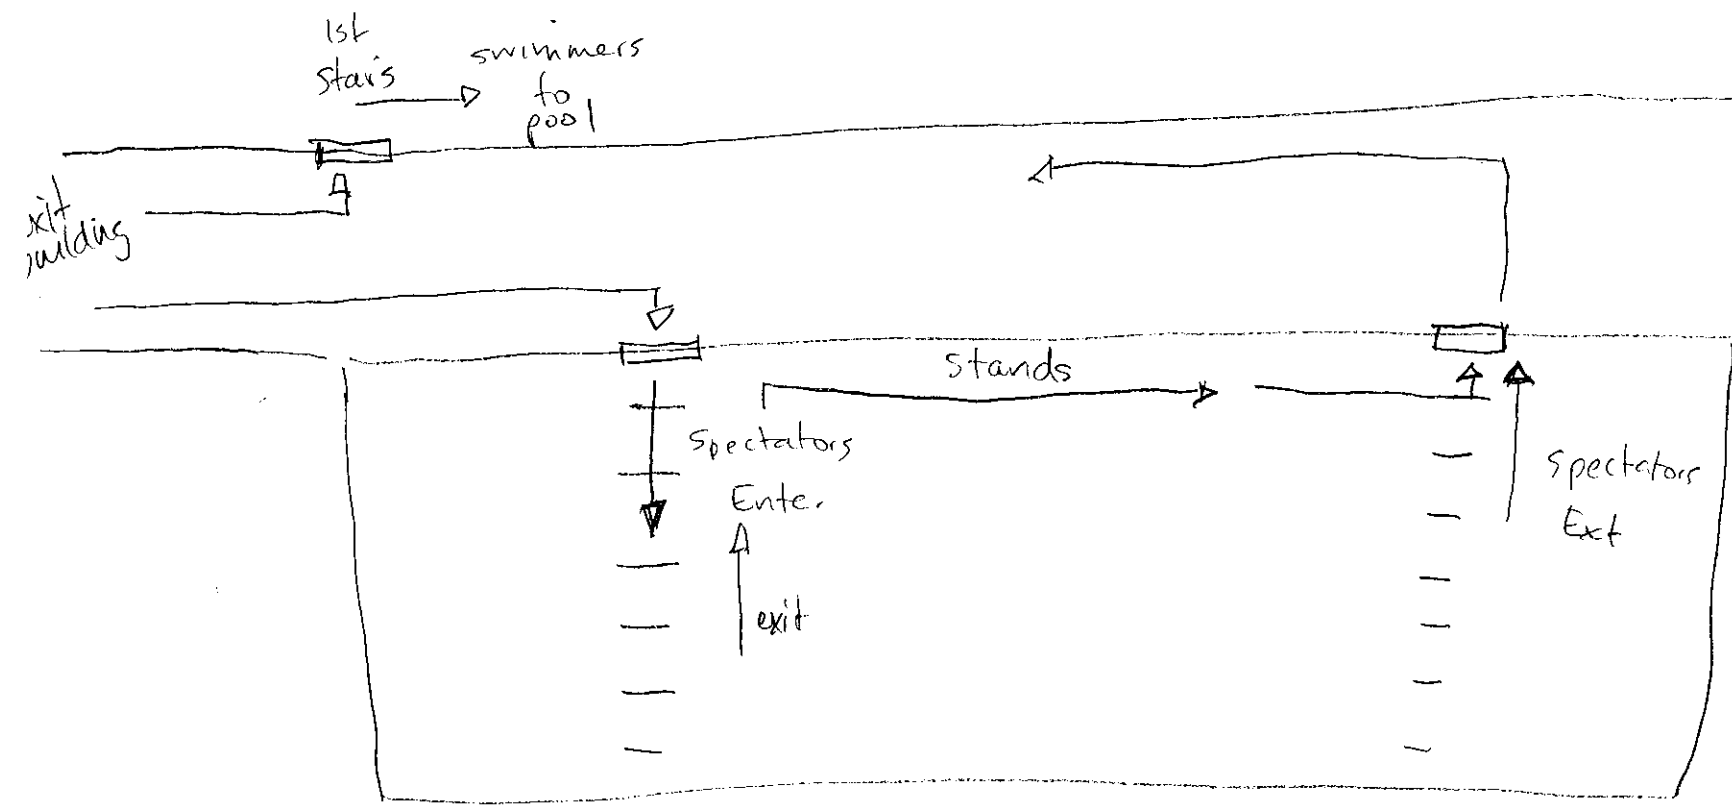 1st
stairs
swimmers
to
pool
xit
uilding
Stands
Spectators
Enter
exit
Spectators
Exit